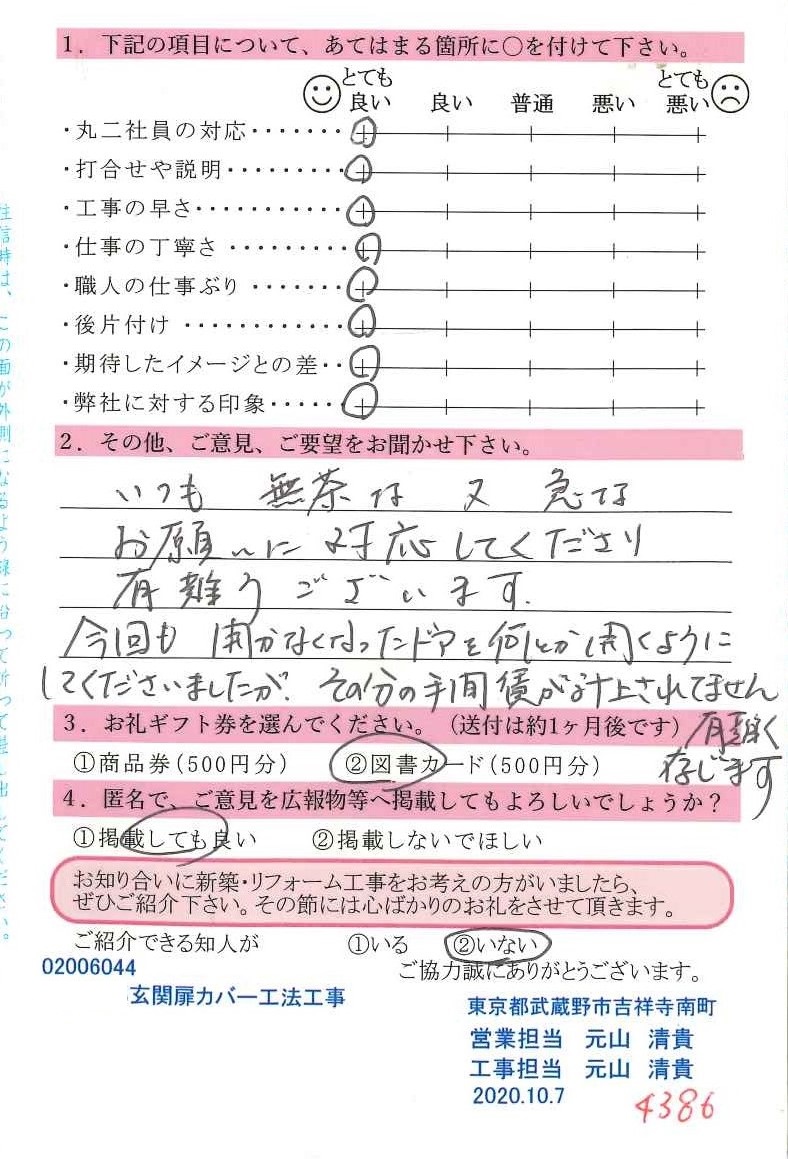 1．下記の項目について、あてはまる箇所に○を付けて下さい。
とても良い 良い 普通 悪い とても悪い
・丸二社員の対応・・・・・・・
・打合せや説明・・・・・・・・・
・工事の早さ・・・・・・・・・・・
・仕事の丁寧さ・・・・・・・・・
・職人の仕事ぶり・・・・・・・
・後片付け・・・・・・・・・・・・
・期待したイメージとの差・・
・弊社に対する印象・・・・・・
2．その他、ご意見、ご要望をお聞かせ下さい。
いつも 無茶な 又 急な
お願いに対応してくださり
有難うございます.
今回も 開かなくなったドアを何とか開くように
してくださいましたが、その分の手間賃が計上されてません
有難く
存じます
3．お礼ギフト券を選んでください。（送付は約1ヶ月後です）
①商品券（500円分） ②図書カード（500円分）
4．匿名で、ご意見を広報物等へ掲載してもよろしいでしょうか？
①掲載しても良い ②掲載しないでほしい
お知り合いに新築・リフォーム工事をお考えの方がいましたら、
ぜひご紹介下さい。その節には心ばかりのお礼をさせて頂きます。
ご紹介できる知人が ①いる ②いない
ご協力誠にありがとうございます。
02006044
玄関扉カバー工法工事
東京都武蔵野市吉祥寺南町
営業担当 元山 清貴
工事担当 元山 清貴
2020.10.7
4386